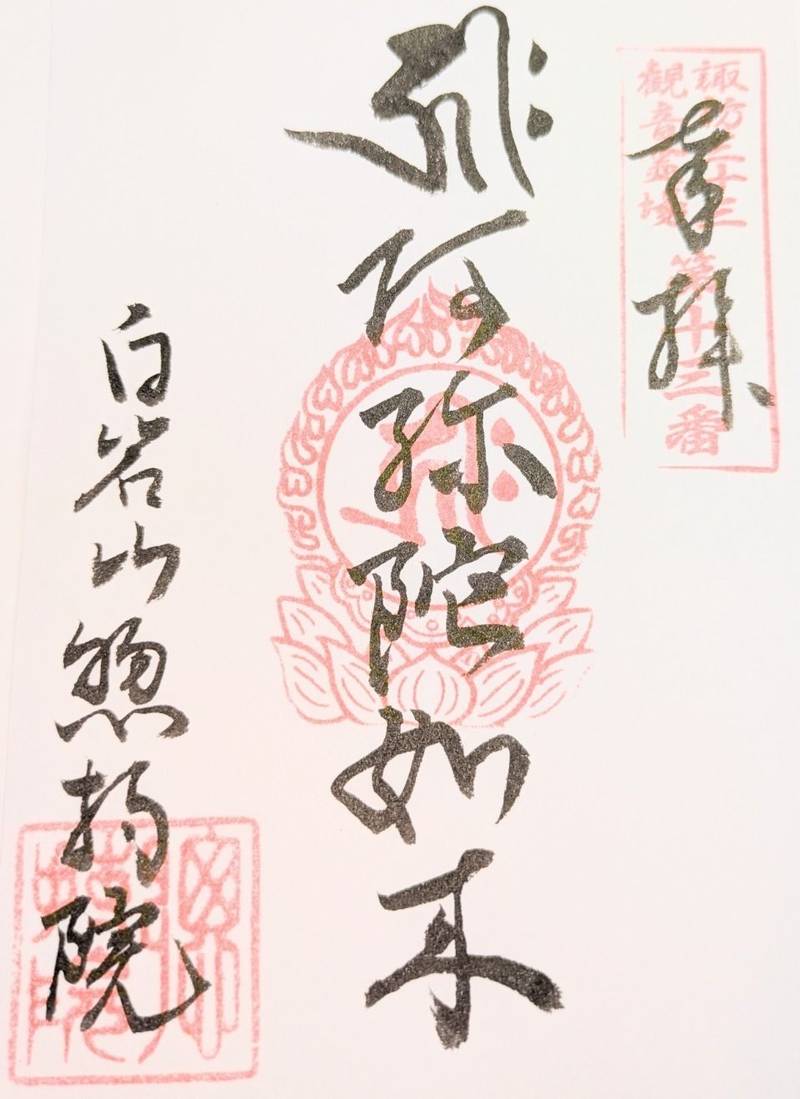 奉拝
諏訪三十三
觀音霊場
第十三番
ह्रीः
阿弥陀如来
白岩山惣持院